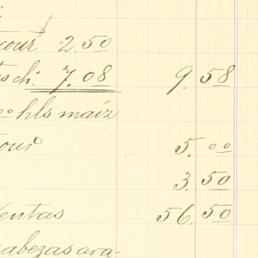 cour 2.50
sch. 7.08 9.58
00 hls maiz
our
5.00
3.50
entas 56.50
abezas ara-